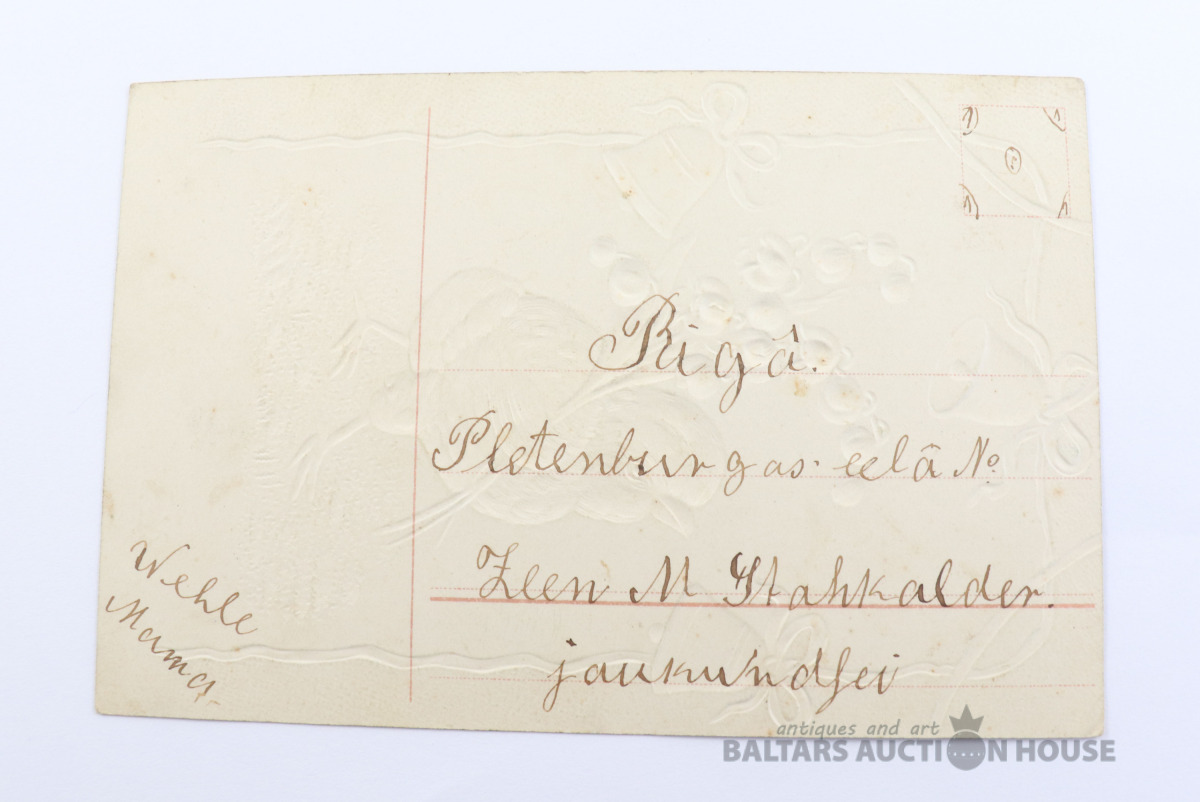 Rigâ.
Pletenburgas eelâ No
Zeen M Stahkalder.
jaukundsei
Wehle
Mama
antiques and art
BALTARS AUCTION HOUSE